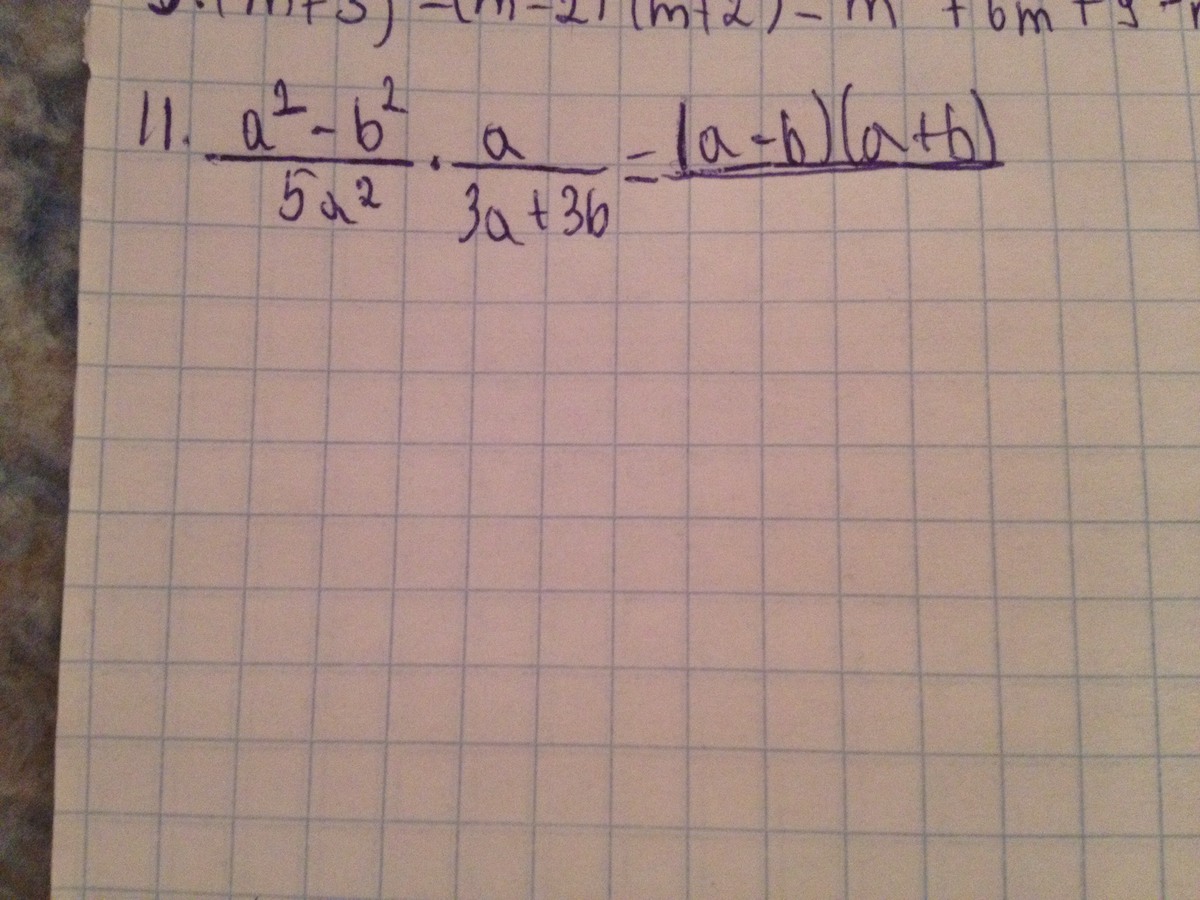 (m+3) -(m-2)(m+2) - m + 6m + 9
11. \frac{a^2 - b^2}{5a^2} \cdot \frac{a}{3a+3b} = \frac{(a-b)(a+b)}{}